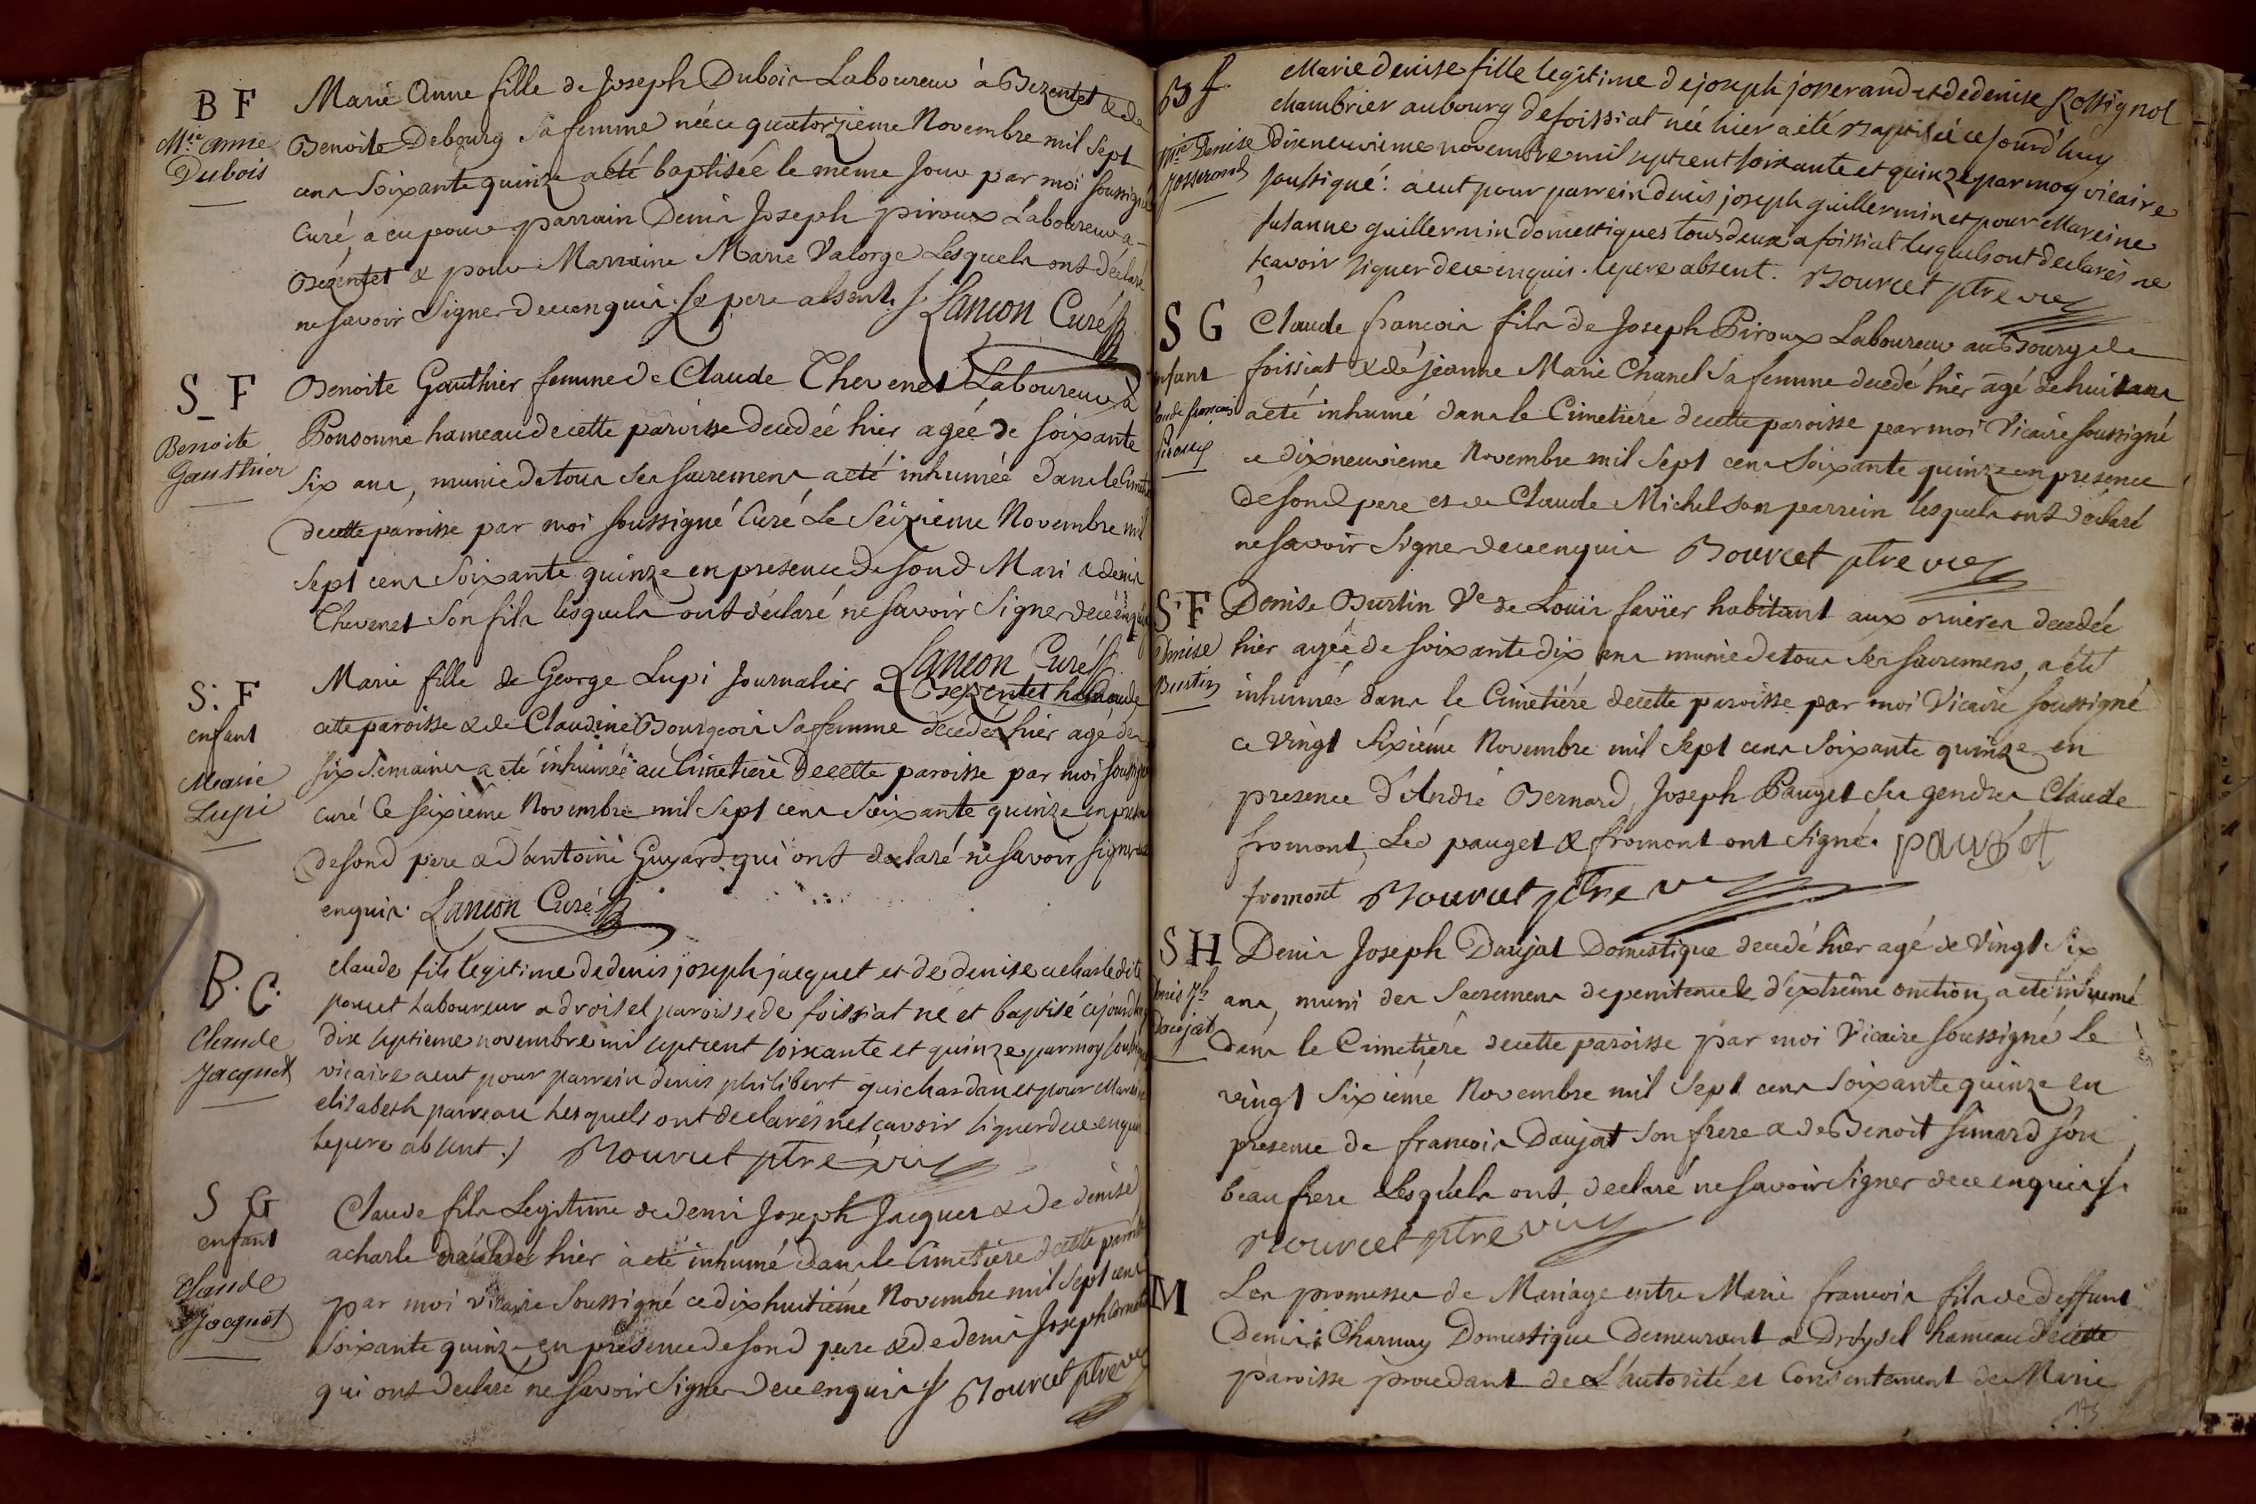 B F
M.ie anne
Dubois
Marie Anne fille de Joseph Dubois Laboureur à Bezentet & de
Benoite Debourg sa femme née ce quatorzieme Novembre mil sept
cens soixante quinze a été baptisée le meme jour par moi soussigné
curé, a eu pour parrain Denis Joseph piroux Laboureur a
Bezentet & pour Marraine Marie Valorge Lesquels ont déclaré
ne savoir signer de ce enquis. Le pere absent. Lancon Curé
S F
Benoite
Gauthier
Benoite Gauthier femme de Claude Thevenet Laboureur à
Ponsonne hameau de cette paroisse decedée hier agée de soixante
six ans, munie de tous ses sacremens a eté inhumée dans le Cimetie
de cette paroisse par moi soussigné Curé Le seizieme Novembre mil
sept cens soixante quinze en presence de sond Mari & denis
Thevenet son fils lesquels ont déclaré ne savoir signer de ce enquis
Lancon Curé
S. F
enfant
Marie
Lupi
Marie fille de George Lupi Journalier a Bezentet hameau de
cette paroisse & de Claudine Bourgeois sa femme décedée hier agé de
six semaines a eté inhumée au Cimetiere de cette paroisse par moi soussigné
curé Ce seixieme Novembre mil sept cens soixante quinze en presen
de sond pere & d'antoine Guyard qui ont declaré ne savoir signer
enquis. Lancon Curé
B. C.
Claude
Jacquet
claude fils legitime de denis joseph jacquet et de denise acharle dite
poncet Laboureur a droisel paroisse de foissiat né et baptisé cejourdhuy
dix septieme novembre mil sept cent soixante et quinze par moy soussigné
vicaire a eut pour parrein denis philibert guichardan et pour Mareine
elisabeth parreau Lesquels ont declarés ne sçavoir signer de ce enquis
Le pere absent ./ Bourcet ptre vic
S G
enfant
Claude
Jacquet
Claude fils Legitime de denis Joseph Jacquet & de denise
acharle decedé hier à eté inhumé dans le Cimetiere de cette paroisse
par moi vicaire soussigné ce dix huitiéme Novembre mil sept cens
soixante quinze en presence de sond pere & de denis Joseph
qui ont declaré ne savoir signer de ce enquis Bourcet ptre vic
B f.
M.ie Denise
Josserand
Marie denise fille legitime de joseph josserand et de denise Rossignol
chambrier au bourg de foissiat née hier a été baptisée ce jourd'huy
dixneuvieme novembre mil sept cent soixante et quinze par moy vicaire
soussigné: a eut pour parrein denis joseph guillermin et pour Mareine
susanne guillermin domestiques tous deux a foissiat lesquels ont declarés ne
scavoir signer de ce enquis. le pere absent. Bourcet ptre vic
S G
enfant
Claude françois
Piroux
Claude francois fils de Joseph Piroux Laboureur au Bourg de
foissiat & de jeanne Marie Chanel sa femme decedé hier agé de huit ans
a eté inhumé dans le Cimetiére de cette paroisse par moi Vicaire soussigné
ce dixneuvieme Novembre mil sept cens soixante quinze en presence
de sond pere et de Claude Michel son parrein lesquels ont déclaré
ne savoir signer de ce enquis Bourcet ptre vic
S F
Denise
Burtin
Denise Burtin Ve de Louis favier habitant aux ornieres decedée
hier agée de soixante dix ans munie de tous ses sacremens, a eté
inhumée dans le Cimetiére de cette paroisse par moi Vicaire soussigné
ce vingt sixiéme Novembre mil sept cens soixante quinze en
presence d'André Bernard, Joseph Pauget ses gendres Claude
fromont, Led pauget & fromont ont signé. paugét
fromont Bourcet ptre vic
S H
Denis Jh
Daujat
Denis Joseph Daujat Domestique decedé hier agé de vingt six
ans, muni des sacremens de penitence & d'extrême onction, a eté inhumé
dans le Cimetiére de cette paroisse par moi Vicaire soussigné le
vingt sixiéme Novembre mil sept cens soixante quinze en
presence de francois Daujat son frere & de Benoit simard son
beau frere Lesquels ont declaré ne savoir signer de ce enquis
Bourcet ptre vic
M
Les promesses de Mariage entre Marie francois fils de deffunt
Denis Charnay Domestique Demeurant a Droysel hameau de cette
paroisse procedant de L'autorité et Consentement de Marie